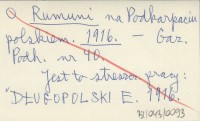 Rumuni na Podkarpaciu
polskiem. 1916. — Gaz.
Podh. nr 40.
Jest to streszcz. pracy:
DŁUGOPOLSKI E. 1916.